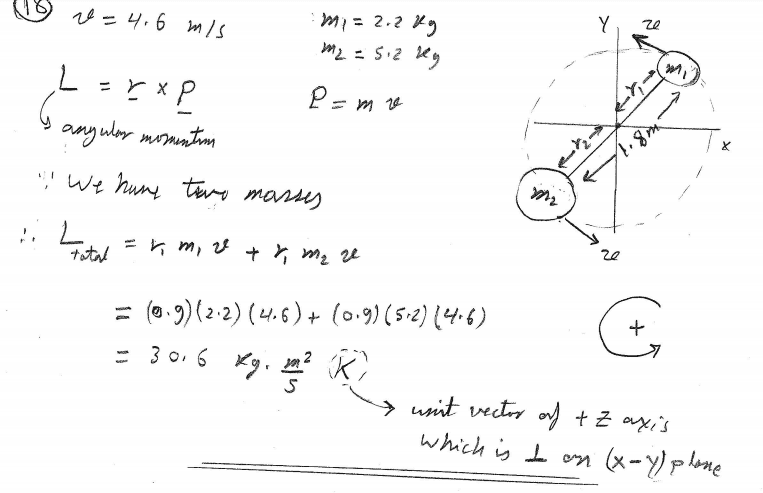 (18) v = 4.6 m/s
m₁ = 2.2 kg
m₂ = 5.2 kg
L = r × P
P = m v
angular momentum
∵ We have two masses
∴ L total = r₁ m₁ v + r₁ m₂ v
= (0.9)(2.2)(4.6) + (0.9)(5.2)(4.6)
= 30.6 kg. m²/s (K)
unit vector of + Z axis
which is ⊥ on (x-y) plane
Y
v
m₁
r₁
1.8m
x
r₂
m₂
v
+